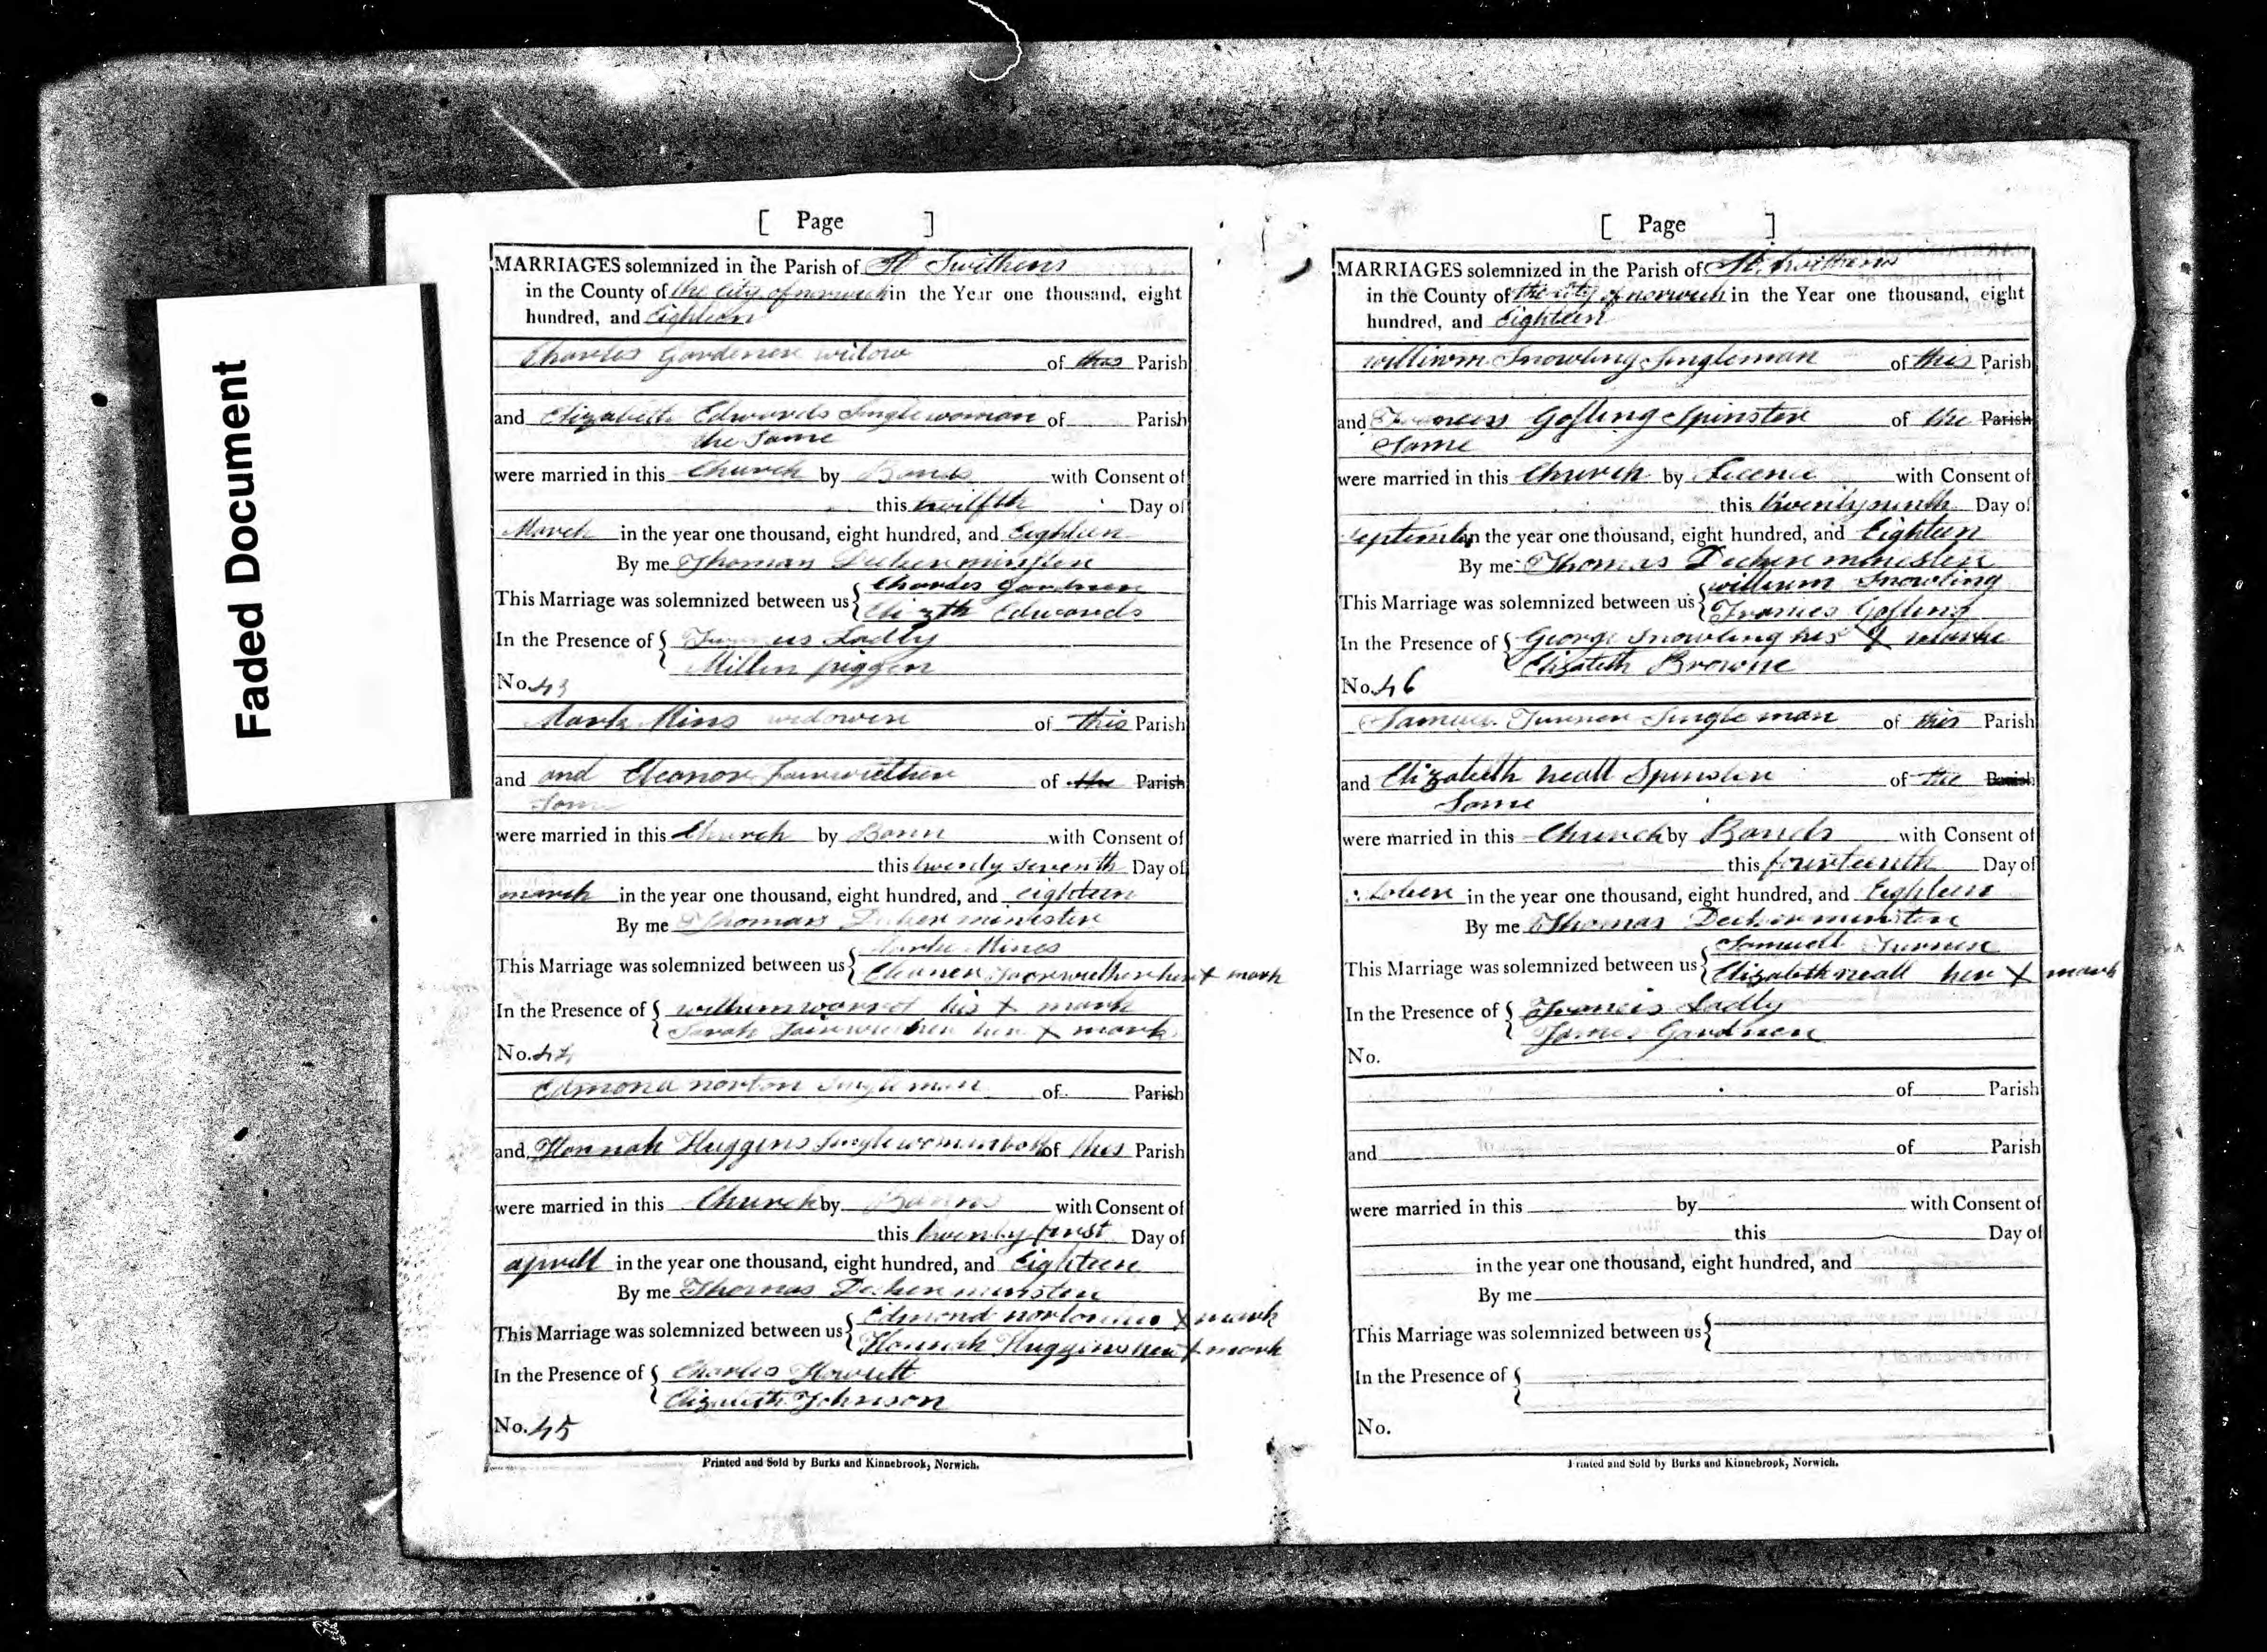 Faded Document
[ Page ]
MARRIAGES solemnized in the Parish of St Swithens
in the County of the city of norwich in the Year one thousand, eight
hundred, and Eighteen
Charles Gardener widow of this Parish
and Elizabeth Edwards Singlewoman of Parish
the Same
were married in this Church by with Consent of
this twilfth Day of
March in the year one thousand, eight hundred, and Eighteen
By me Thomas Decker
This Marriage was solemnized between us { Charles
Elizth Edwards
In the Presence of { Ladly
piggen
No. 43
Mark Mins of this Parish
and and Eleanor of the Parish
Same
were married in this Church by Bann with Consent of
this twenty seventh Day of
march in the year one thousand, eight hundred, and eighteen
By me Thomas Decker
This Marriage was solemnized between us { Marke Mines
her X mark
In the Presence of { his X mark
Sarah her X mark
No. 44
Edmond norton Singleman of Parish
and Hannah Huggins Singlewoman both of this Parish
were married in this Church by Banns with Consent of
this twenty first Day of
aprill in the year one thousand, eight hundred, and Eighteen
By me Thomas Decker
This Marriage was solemnized between us { Edmond norton X mark
Hannah Huggins her X mark
In the Presence of { Charles Howlett
Elizabeth Johnson
No. 45
Printed and Sold by Burks and Kinnebrook, Norwich.
[ Page ]
MARRIAGES solemnized in the Parish of St. Swithens
in the County of the city of norwich in the Year one thousand, eight
hundred, and Eighteen
william Snowling Singleman of this Parish
and Frances Gosling Spinster of the Parish
Same
were married in this Church by with Consent of
this twentyninth Day of
september in the year one thousand, eight hundred, and Eighteen
By me Thomas Decker
This Marriage was solemnized between us { william Snowling
Frances Gosling
In the Presence of { George Snowling his X marke
Elizabeth Browne
No. 46
Samuel Turner Single man of this Parish
and Elizabeth neall Spinster of the Parish
Same
were married in this Church by with Consent of
this fourteenth Day of
in the year one thousand, eight hundred, and Eighteen
By me Thomas Decker
This Marriage was solemnized between us { Samuell
Elizabeth neall her X mark
In the Presence of { Francis Ladly
James
No.
of Parish
and of Parish
were married in this by with Consent of
this Day of
in the year one thousand, eight hundred, and
By me
This Marriage was solemnized between us {
In the Presence of {
No.
Printed and Sold by Burks and Kinnebrook, Norwich.